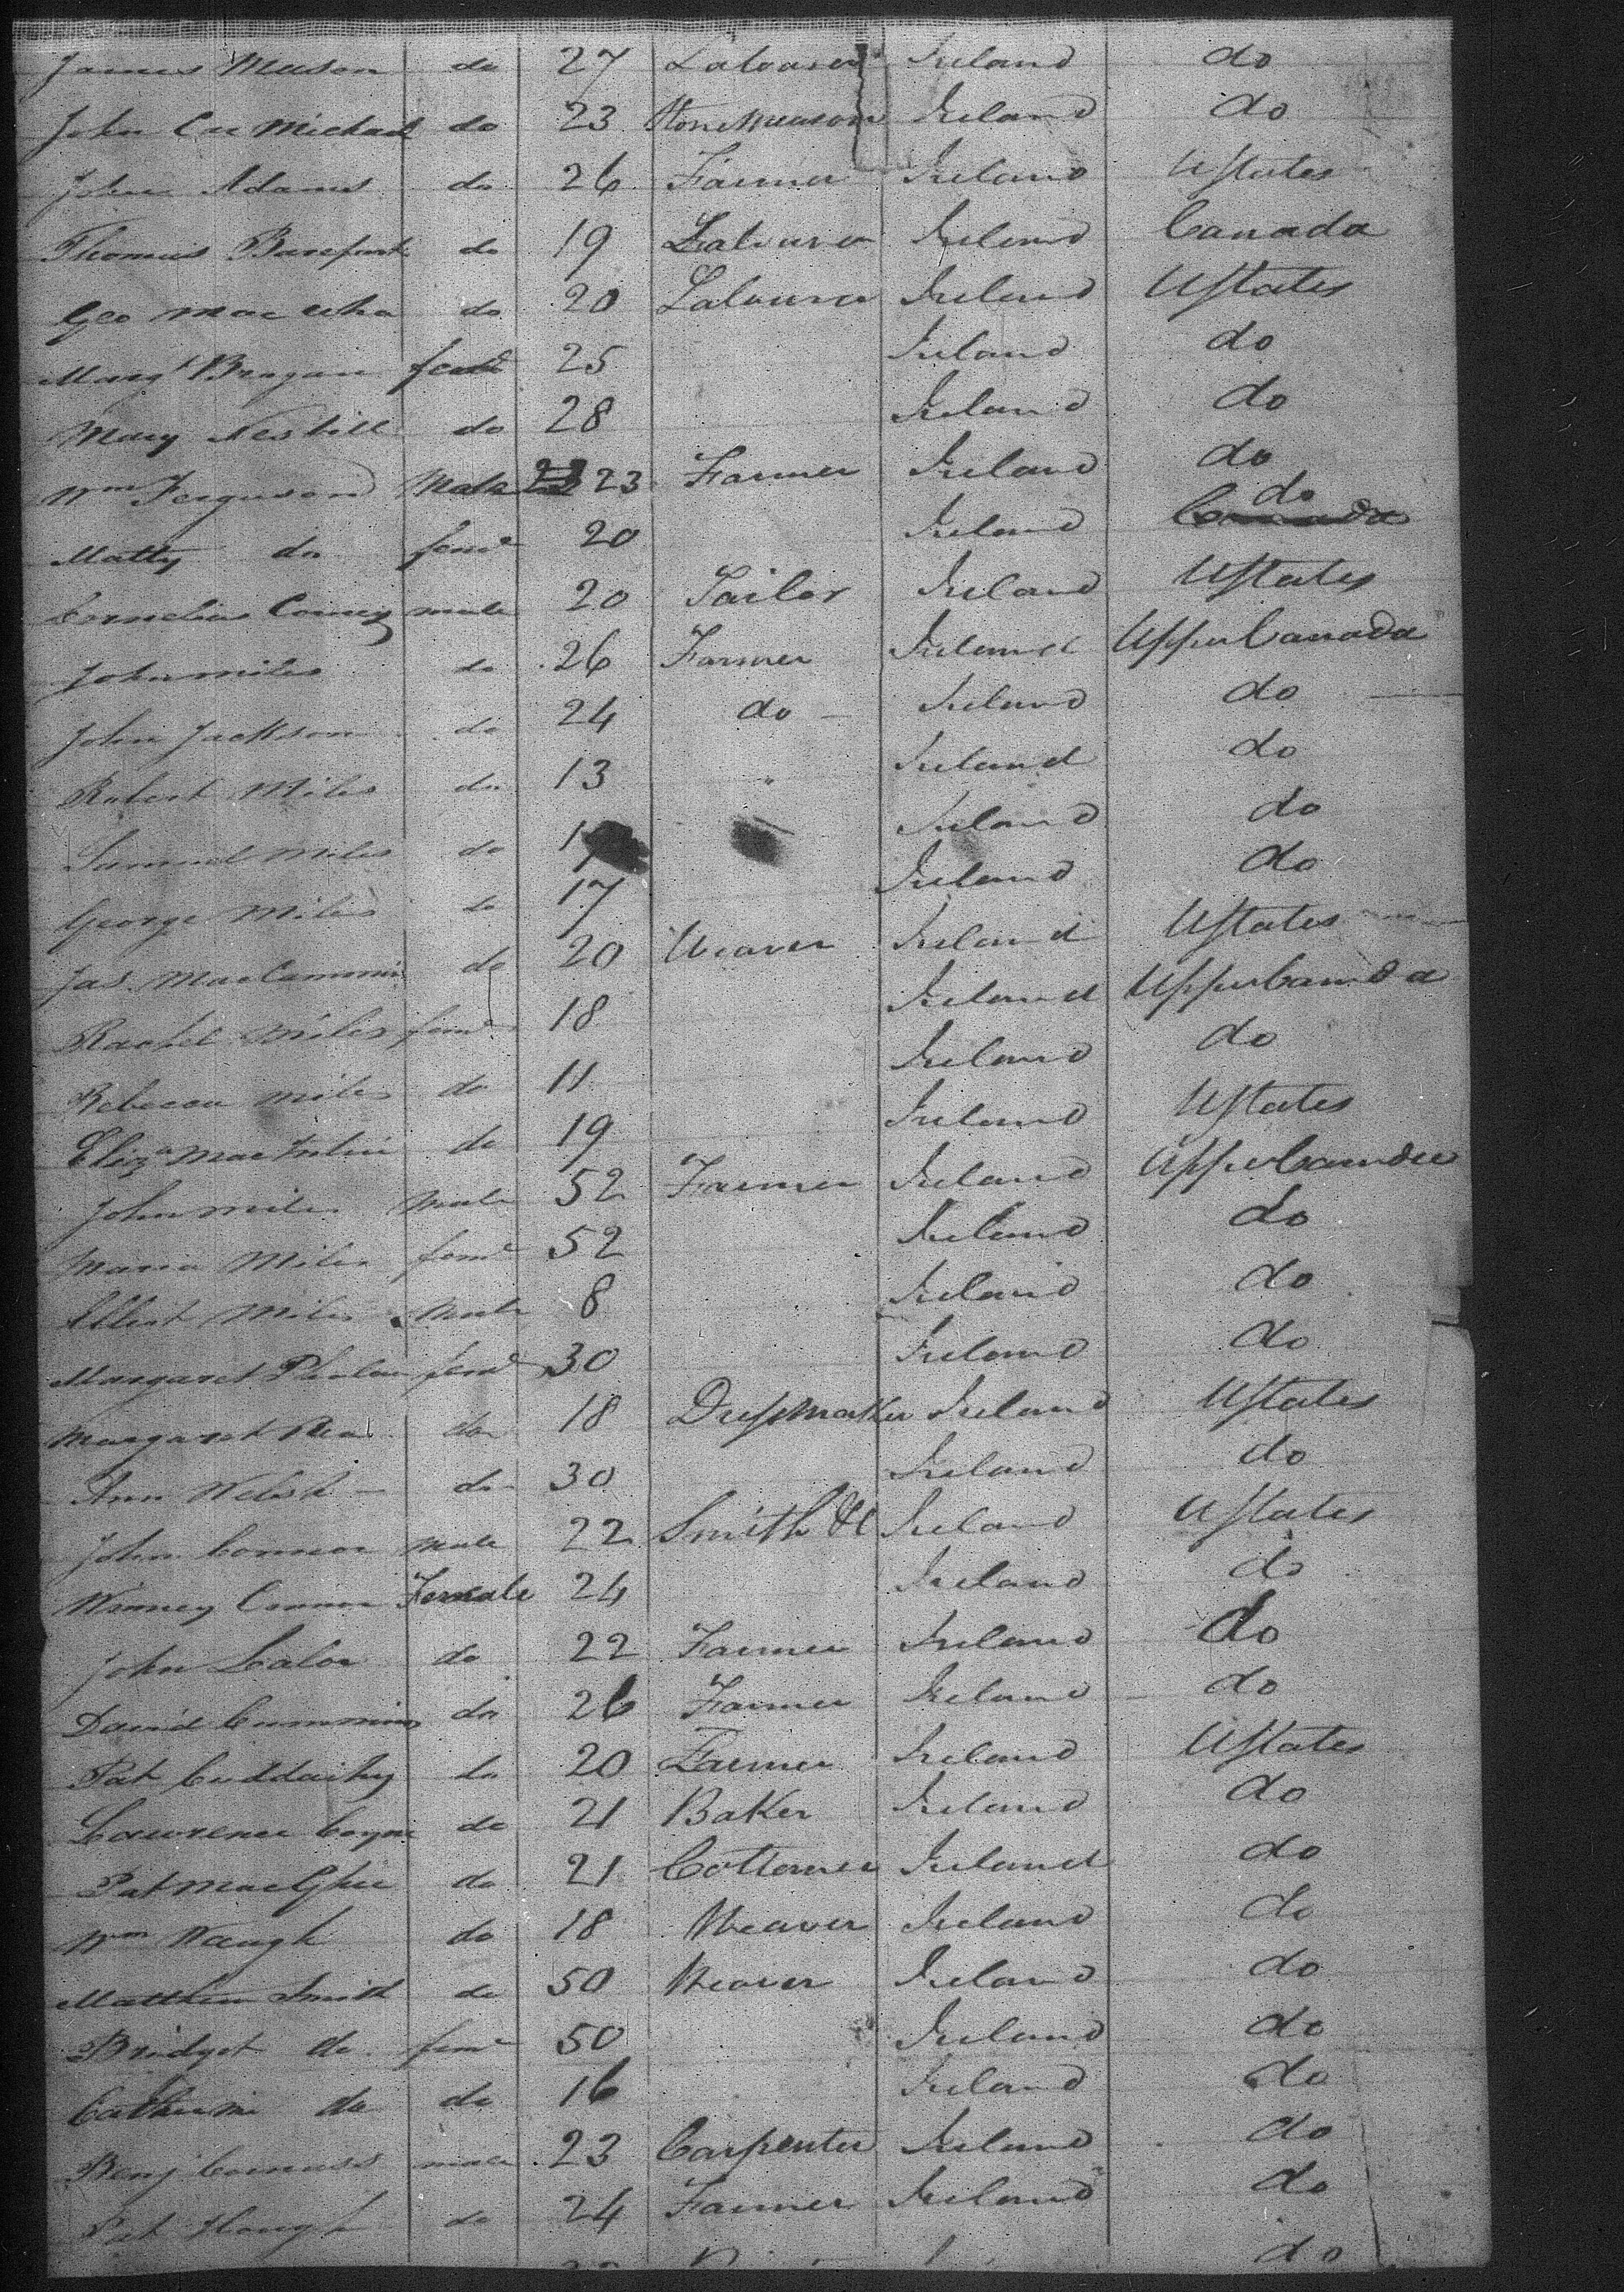 James Mason do 27 Labourer Ireland do
John Car Michael do 23 Stone Meason Ireland do
John Adams do 26 Farmer Ireland UStates
Thomas Barefoot do 19 Labourer Ireland Canada
Geo do 20 Labourer Ireland UStates
Margt Brogan 25 Ireland do
Mary Nesbitt do 28 Ireland do
Wm Ferguson Male 23 Farmer Ireland do
Matty do feme 20 Ireland do
Cornelius male 20 Tailor Ireland UStates
John miles do 26 Farmer Ireland Upper Canada
John Jackson do 24 do Ireland do
Robert Miles do 13 " Ireland do
Samuel Miles do Ireland do
George Miles do 17 Ireland do
Jas. MacCammin do 20 Weaver Ireland UStates
Rachel Miles feme 18 Ireland Upper Canada
Rebecca miles do 11 Ireland do
Eliza do 19 Ireland UStates
John miles Male 52 Farmer Ireland Upper Canada
Maria Miles feme 52 Ireland do
Miles Male 8 Ireland do
Margaret feme 30 Ireland do
Margaret do 18 Dressmaker Ireland UStates
Ann Welsh do 30 Ireland do
John Connor male 22 Smith &c Ireland UStates
Winney Connor Female 24 Ireland do
John Lalor do 22 Farmer Ireland do
David Cummins do 26 Farmer Ireland do
Pat Cuddaihy do 20 Farmer Ireland UStates
Lawrence Coyne do 21 Baker Ireland do
Pat MacGhee do 21 Ireland do
Wm Waugh do 18 Weaver Ireland do
Matthew Smith do 50 Weaver Ireland do
Bridget do feme 50 Ireland do
Catherine do do 16 Ireland do
Benj male 23 Carpenter Ireland do
Pat Hough do 24 Farmer Ireland do
do